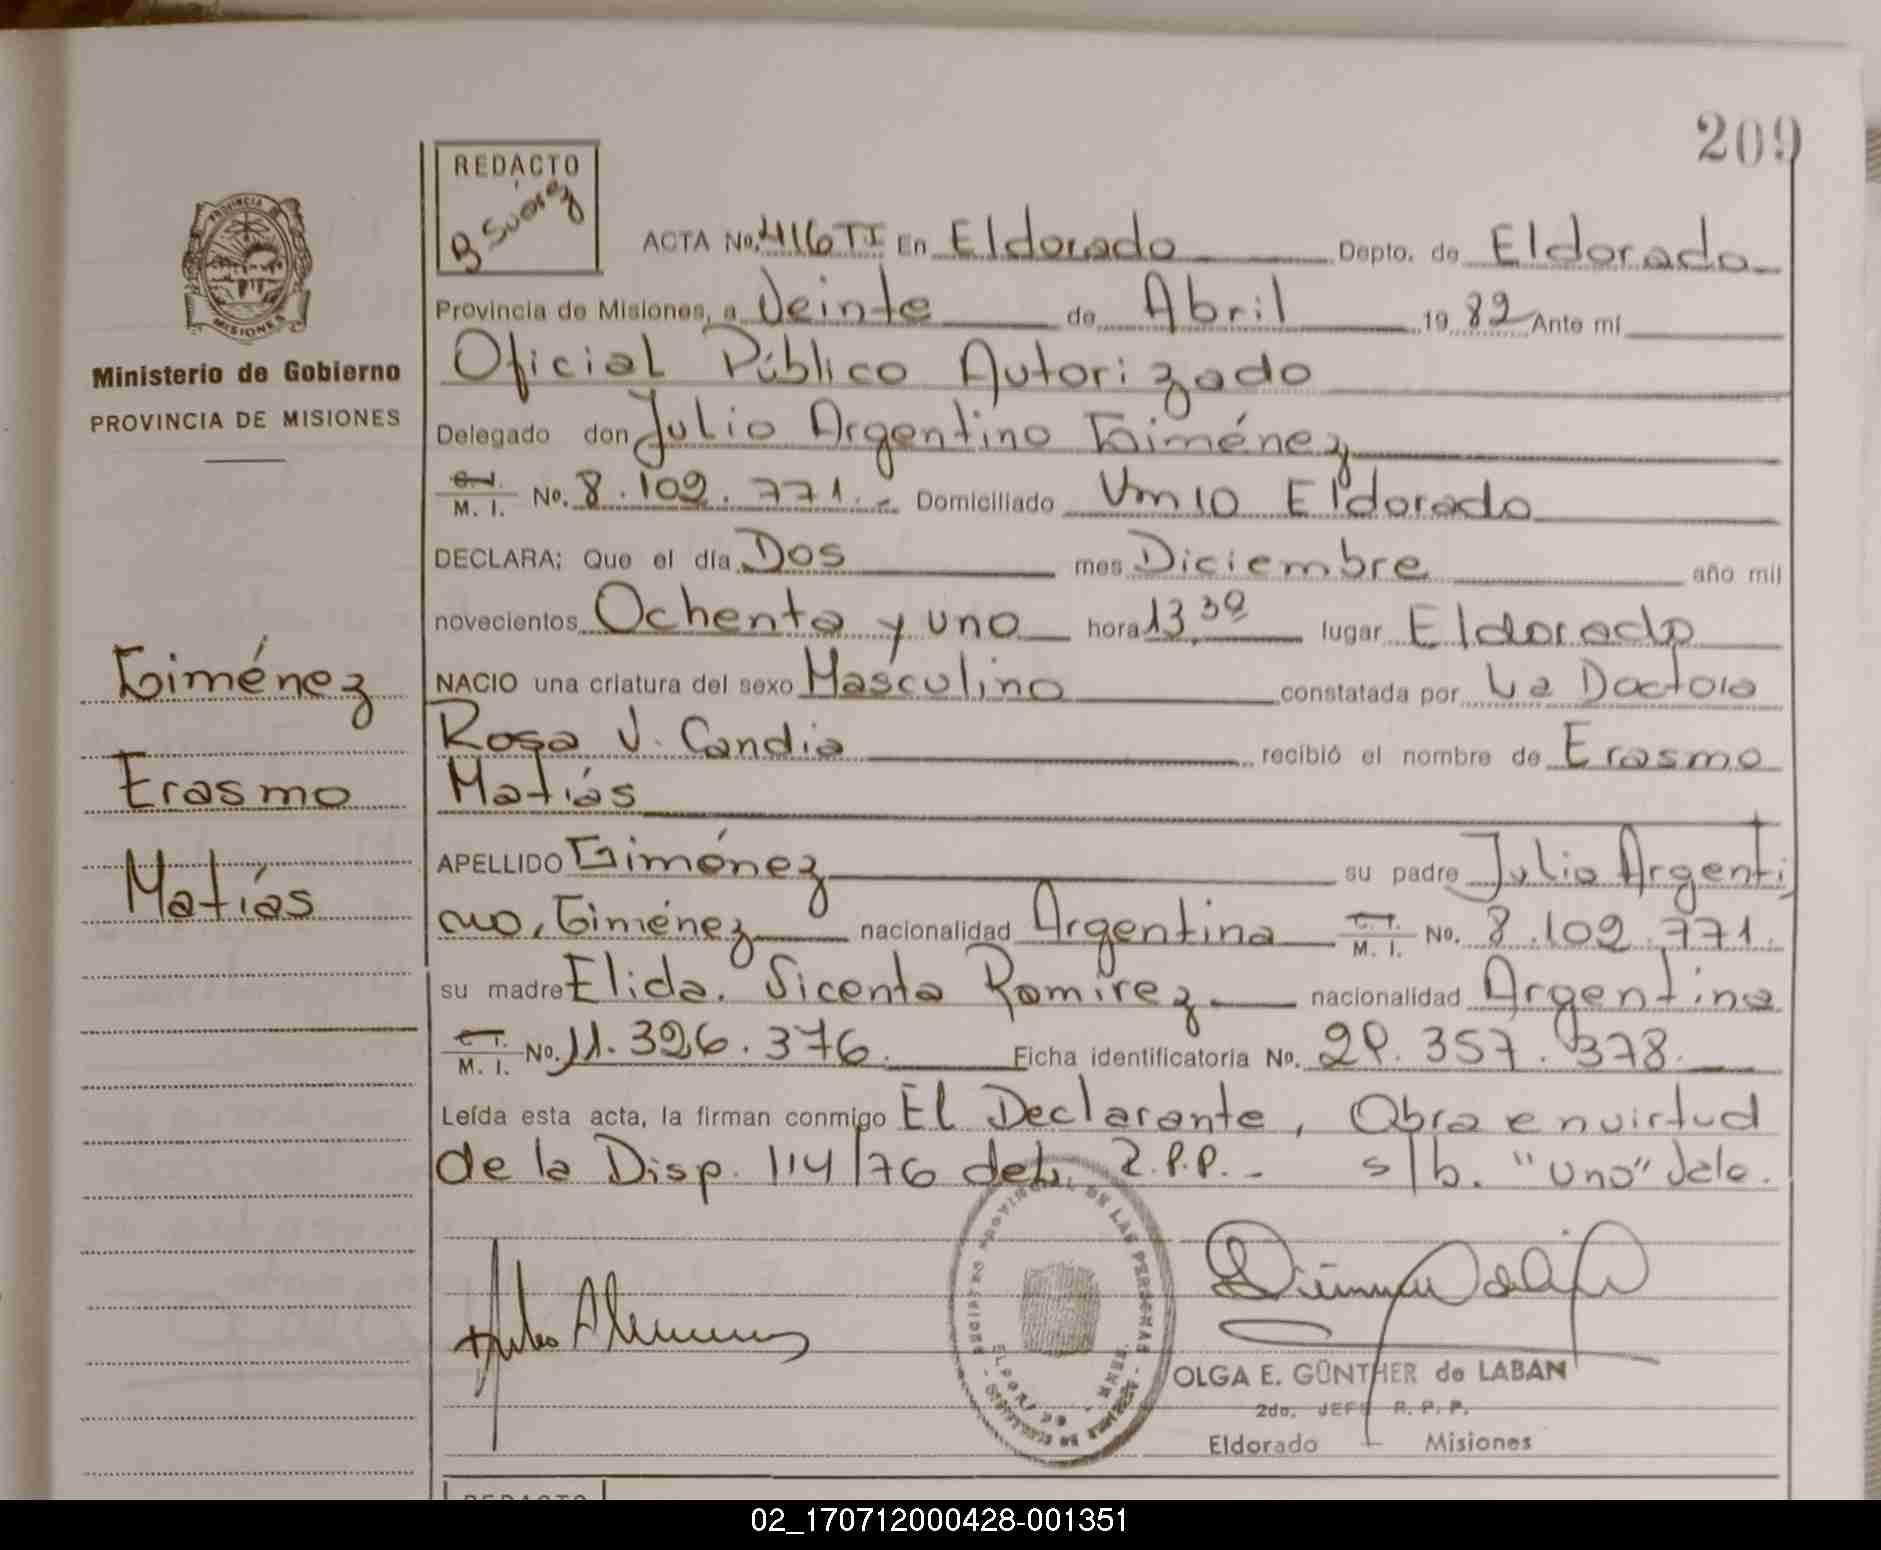 209
REDACTO
B Suárez
PROVINCIA DE MISIONES
Ministerio de Gobierno
PROVINCIA DE MISIONES
ACTA No. 416 TI En Eldorado Depto. de Eldorado
Provincia de Misiones, a Veinte de Abril 19 82 Ante mí
Oficial Público Autorizado
Delegado don Julio Argentino Giménez
M. I. No. 8.102.771.- Domiciliado Km 10 Eldorado
DECLARA: Que el día Dos mes Diciembre año mil
novecientos Ochenta y uno hora 13,30 lugar Eldorado
NACIO una criatura del sexo Masculino constatada por La Doctora
Rosa V. Candia recibió el nombre de Erasmo
Matías
APELLIDO Giménez su padre Julio Argenti
no, Giménez nacionalidad Argentina C. I. M. I. No. 8.102.771.
su madre Elida. Vicenta Ramírez nacionalidad Argentina
C. I. M. I. No. 11.326.376. Ficha identificatoria No. 29.357.378.
Leída esta acta, la firman conmigo El Declarante, Obra en virtud
de la Disp. 114/76 del R.P.P.- s/b. "uno" Vale.
Giménez
Erasmo
Matías
PROVINCIAL DE LAS PERSONAS
OLGA E. GÜNTHER de LABAN
2do. JEFE R. P. P.
Eldorado - Misiones
REDACTO
02_170712000428-001351